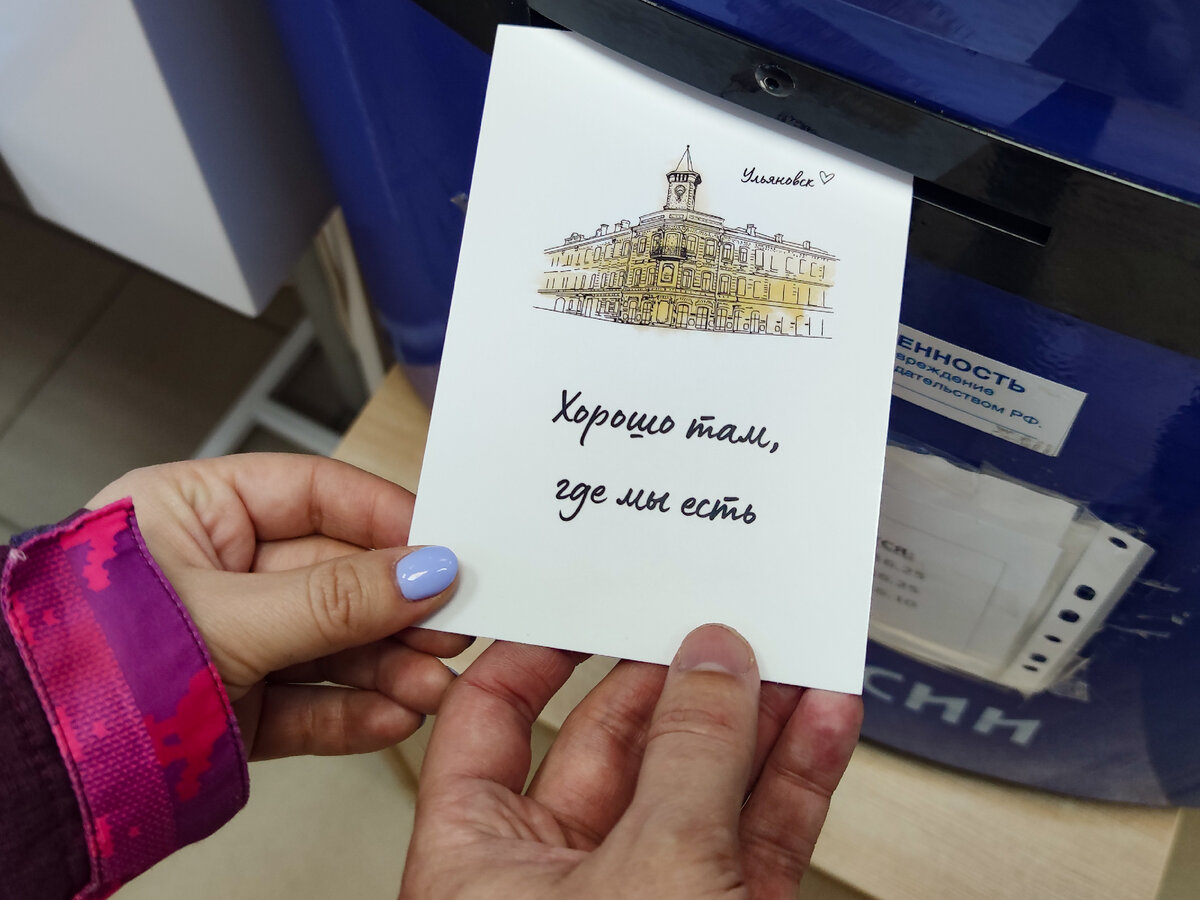 Ульяновск
Хорошо там,
где мы есть
ЕННОСТЬ
вреждение
дательством РФ.
СИИ